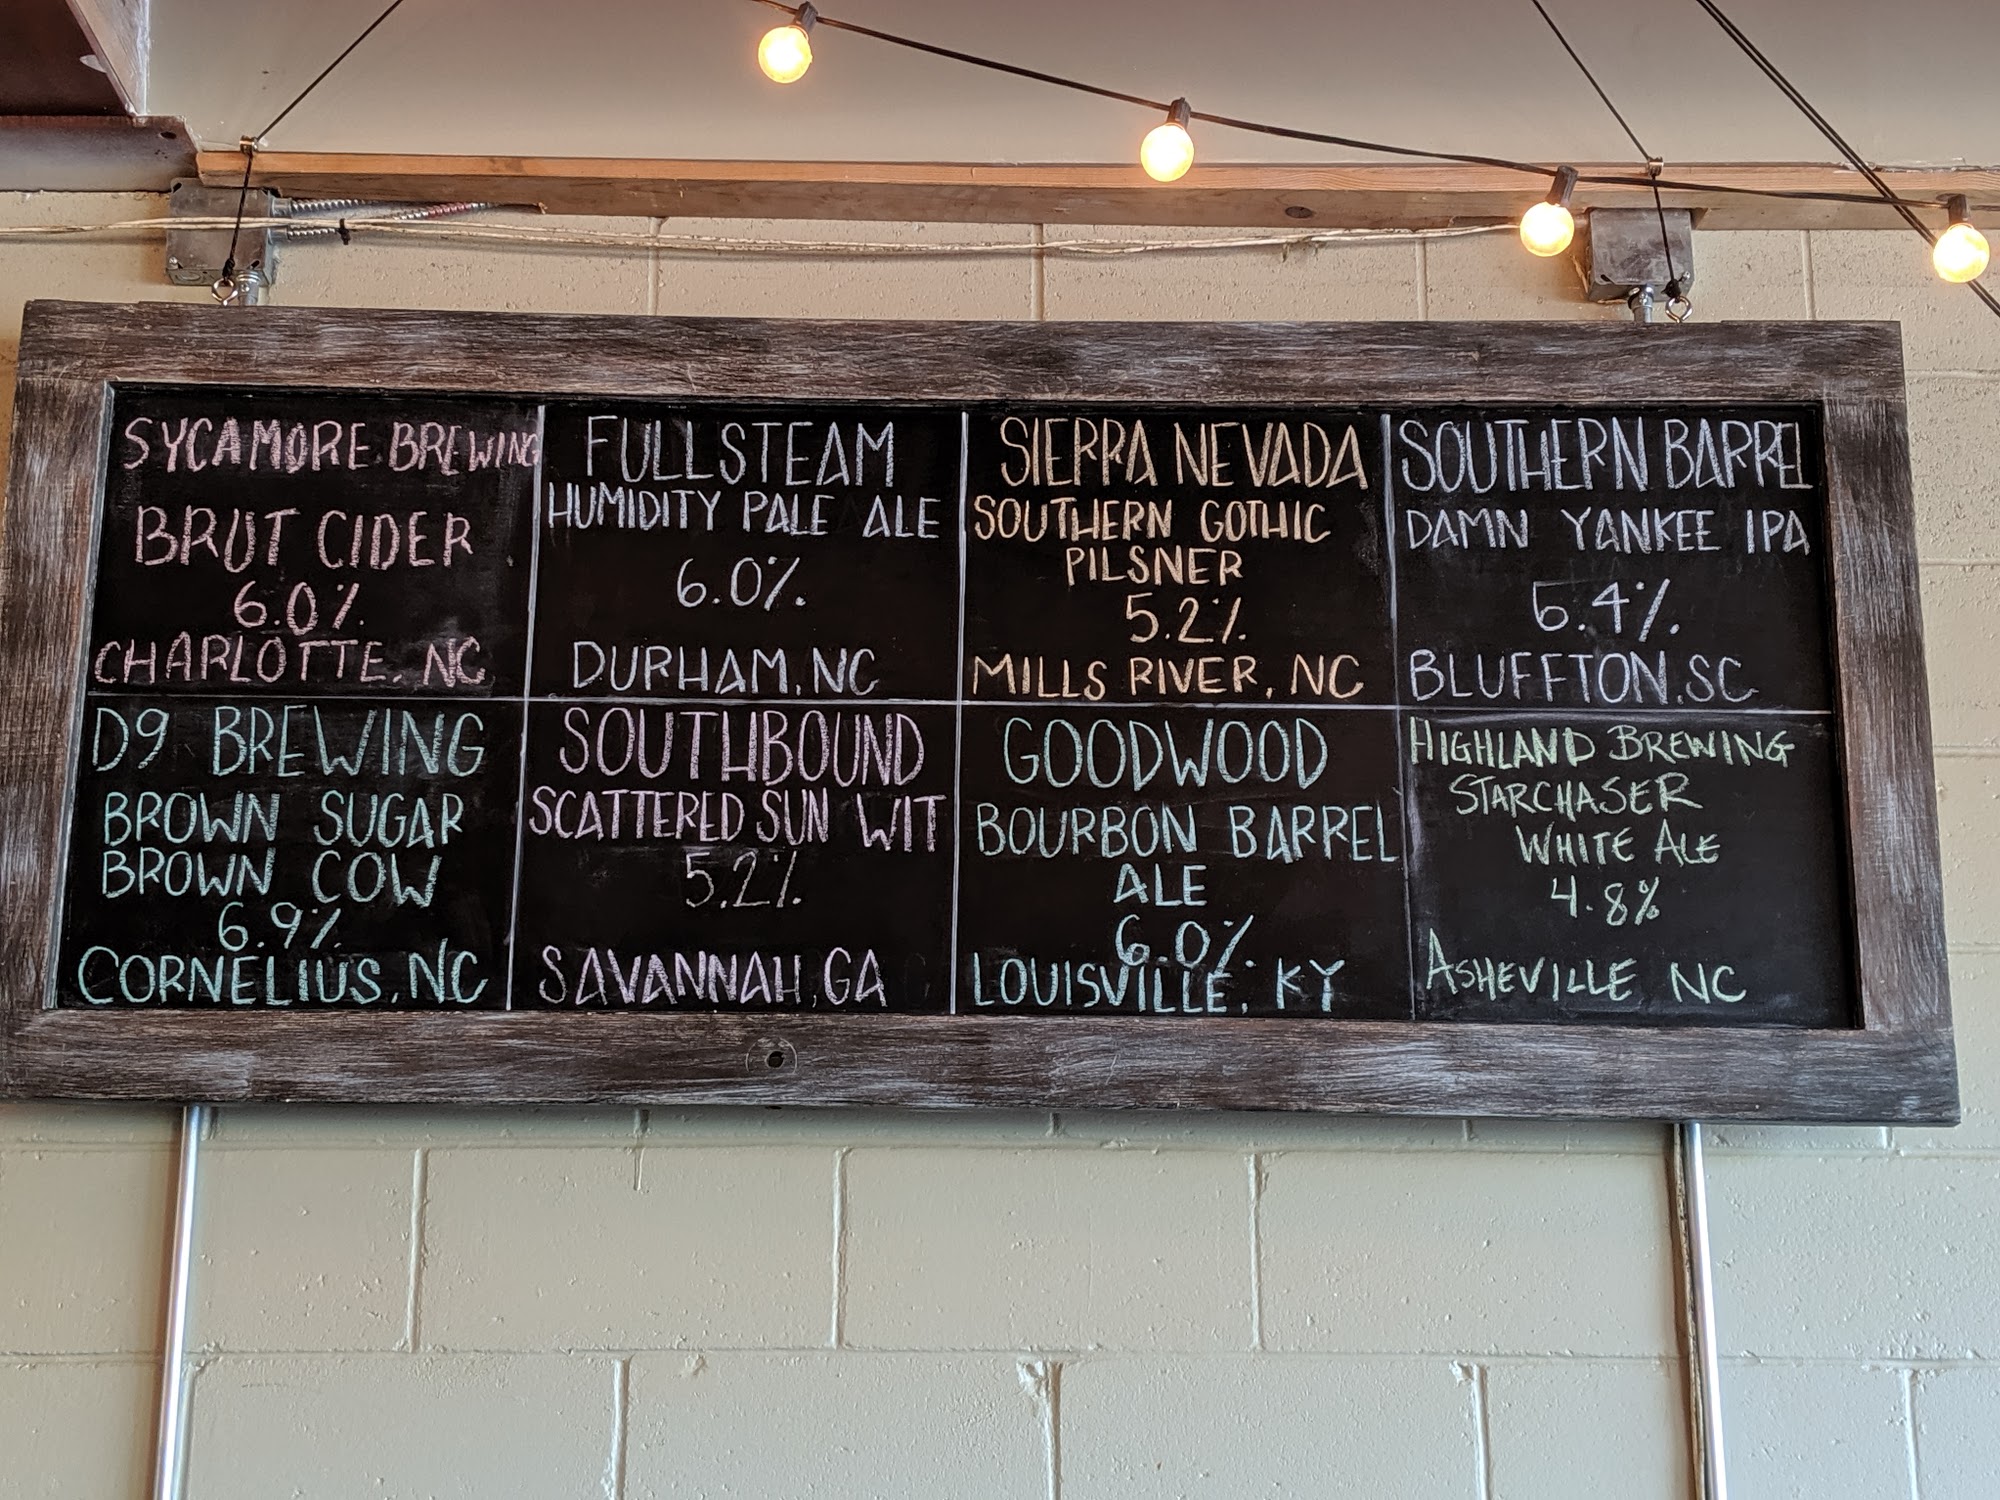 SYCAMORE BREWING
BRUT CIDER
6.0%
CHARLOTTE, NC
FULLSTEAM
HUMIDITY PALE ALE
6.0%
DURHAM, NC
SIERRA NEVADA
SOUTHERN GOTHIC
PILSNER
5.2%
MILLS RIVER, NC
SOUTHERN BARREL
DAMN YANKEE IPA
6.4%
BLUFFTON, SC
D9 BREWING
BROWN SUGAR
BROWN COW
6.9%
CORNELIUS, NC
SOUTHBOUND
SCATTERED SUN WIT
5.2%
SAVANNAH, GA
GOODWOOD
BOURBON BARREL
ALE
6.0%
LOUISVILLE, KY
HIGHLAND BREWING
STARCHASER
WHITE ALE
4.8%
ASHEVILLE NC